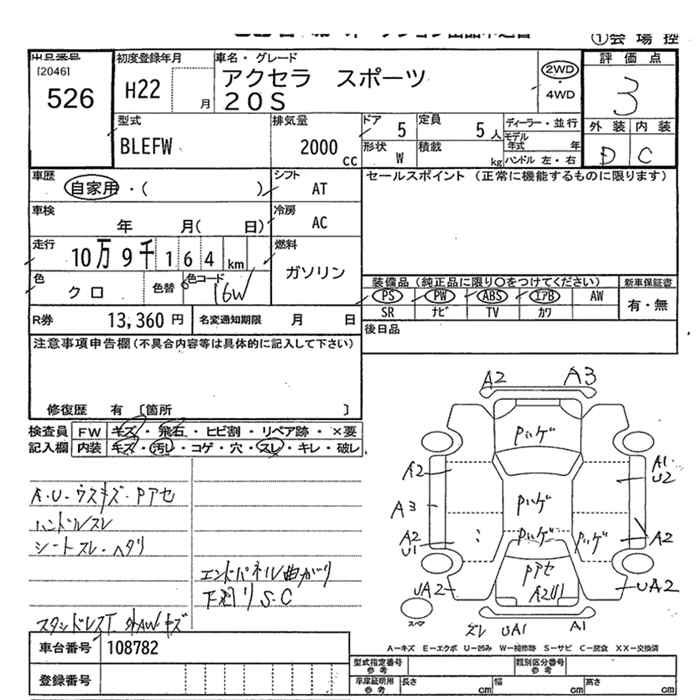 ①会場控
出品番号
[2046]
526
初度登録年月
H22
月
車名・グレード
アクセラ スポーツ
20S
2WD
・
4WD
評価点
3
外装 内装
D C
型式
BLEFW
排気量
2000 cc
ドア 5
定員 5人
形状 W
積載 kg
ディーラー・並行
モデル年式 年
ハンドル 左・右
車歴
自家用・( )
シフト
AT
セールスポイント (正常に機能するものに限ります)
車検
年 月( 日)
冷房
AC
走行
10万9千164km
燃料
ガソリン
色
クロ
色替
色コード
16W
装備品(純正品に限り○をつけてください)
新車保証書
PS PW ABS エアB AW
SR ナビ TV カワ
有・無
R券 13,360円
名変通知期限 月 日
後日品
注意事項申告欄(不具合内容等は具体的に記入して下さい)
修復歴 有 [箇所 ]
検査員
記入欄
FW キズ・飛石・ヒビ割・リペア跡・×要
内装 キズ・汚レ・コゲ・穴・スレ・キレ・破レ
A・U・ウスキズ・Pアセ
ハンドルスレ
シートスレ・ヘタリ
エンドパネル曲がり
下廻りS.C
スタッドレスT 外AWキズ
A2 A3
Pハゲ
A2
A1
U2
A3
Pハゲ
A2
U1
Pハゲ
Pハゲ
A2
Pアセ
UA2
UA2
スペア
ズレ UA1 A1
A-キズ E-エクボ U-凹み W-補修跡 S-サビ C-腐食 XX-交換済
車台番号 108782
登録番号
型式指定番号
参考
類別区分番号
参考
車庫証明用
参考
長さ cm
幅 cm
高さ cm